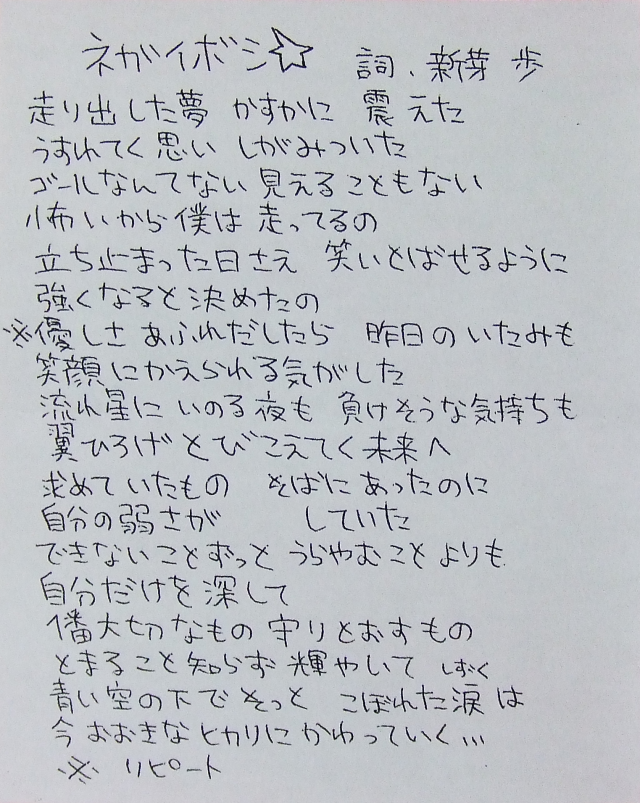 ネガイボシ☆
詞、新芽 歩
走り出した夢 かすかに 震えた
うすれてく思い しがみついた
ゴールなんてない 見えることもない
怖いから僕は 走ってるの
立ち止まった日さえ 笑いとばせるように
強くなると決めたの
※優しさ あふれだしたら 昨日のいたみも
笑顔にかえられる気がした
流れ星に いのる夜も 負けそうな気持ちも
翼ひろげ とびこえてく未来へ
求めていたもの そばにあったのに
自分の弱さが していた
できないことずっと うらやむことよりも
自分だけを深して
大切なもの 守りとおすもの
とまること知らず 輝やいて しずく
青い空の下で そっと こぼれた涙は
今おおきなヒカリにかわっていく…
※ リピート